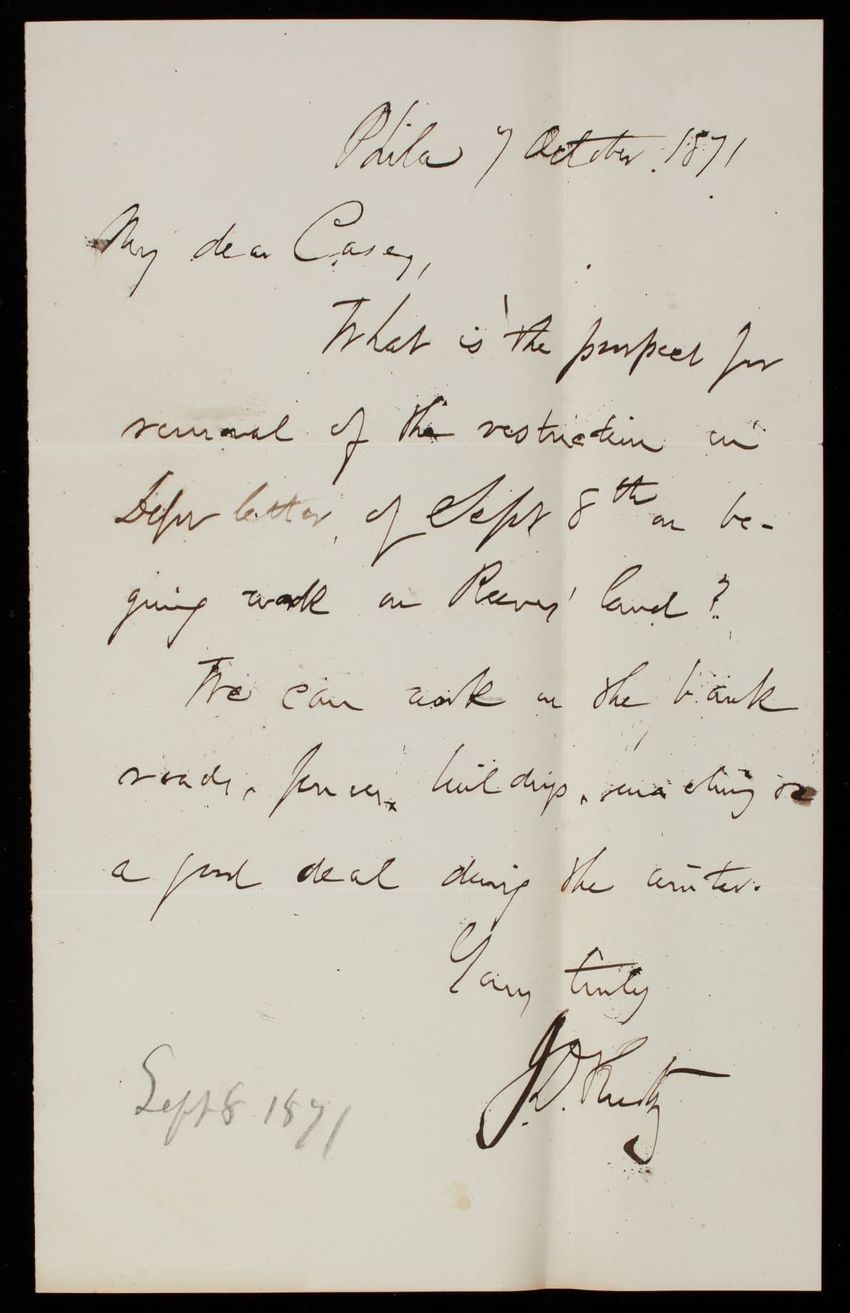 Phila 7 October. 1871
My dear Casey,
What is the prospect for
removal of the restriction in
Dept letter, of Sept 8th on be-
ginning work on Reeves' land?
We can work on the bank
roads, fences, buildings, machinery &c
a good deal during the winter.
Yours truly
J.D. Kurtz
Sept 8 1871